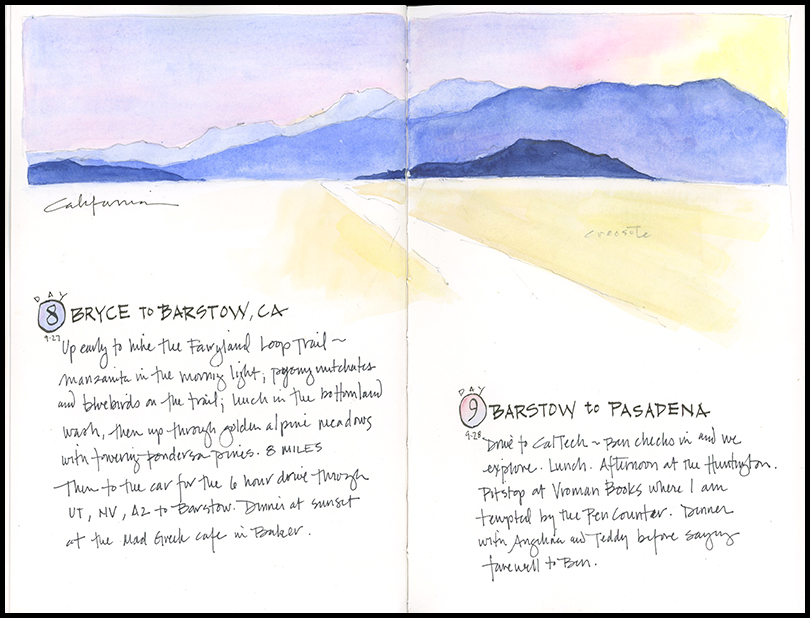 California
creosote
DAY
8 BRYCE to BARSTOW, CA
9-27
Up early to hike the Fairyland Loop Trail ~
manzanita in the morning light; pygmy nuthatches
and bluebirds on the trail; lunch in the bottomland
wash, then up through golden alpine meadows
with towering ponderosa pines. 8 MILES
Then to the car for the 6 hour drive through
UT, NV, AZ to Barstow. Dinner at sunset
at the Mad Greek cafe in Baker.
DAY
9 BARSTOW to PASADENA
9-28
Drive to CalTech ~ Ben checks in and we
explore. Lunch. Afternoon at the Huntington.
Pitstop at Vroman Books where I am
tempted by the Pen Counter. Dinner
with and Teddy before saying
farewell to Ben.